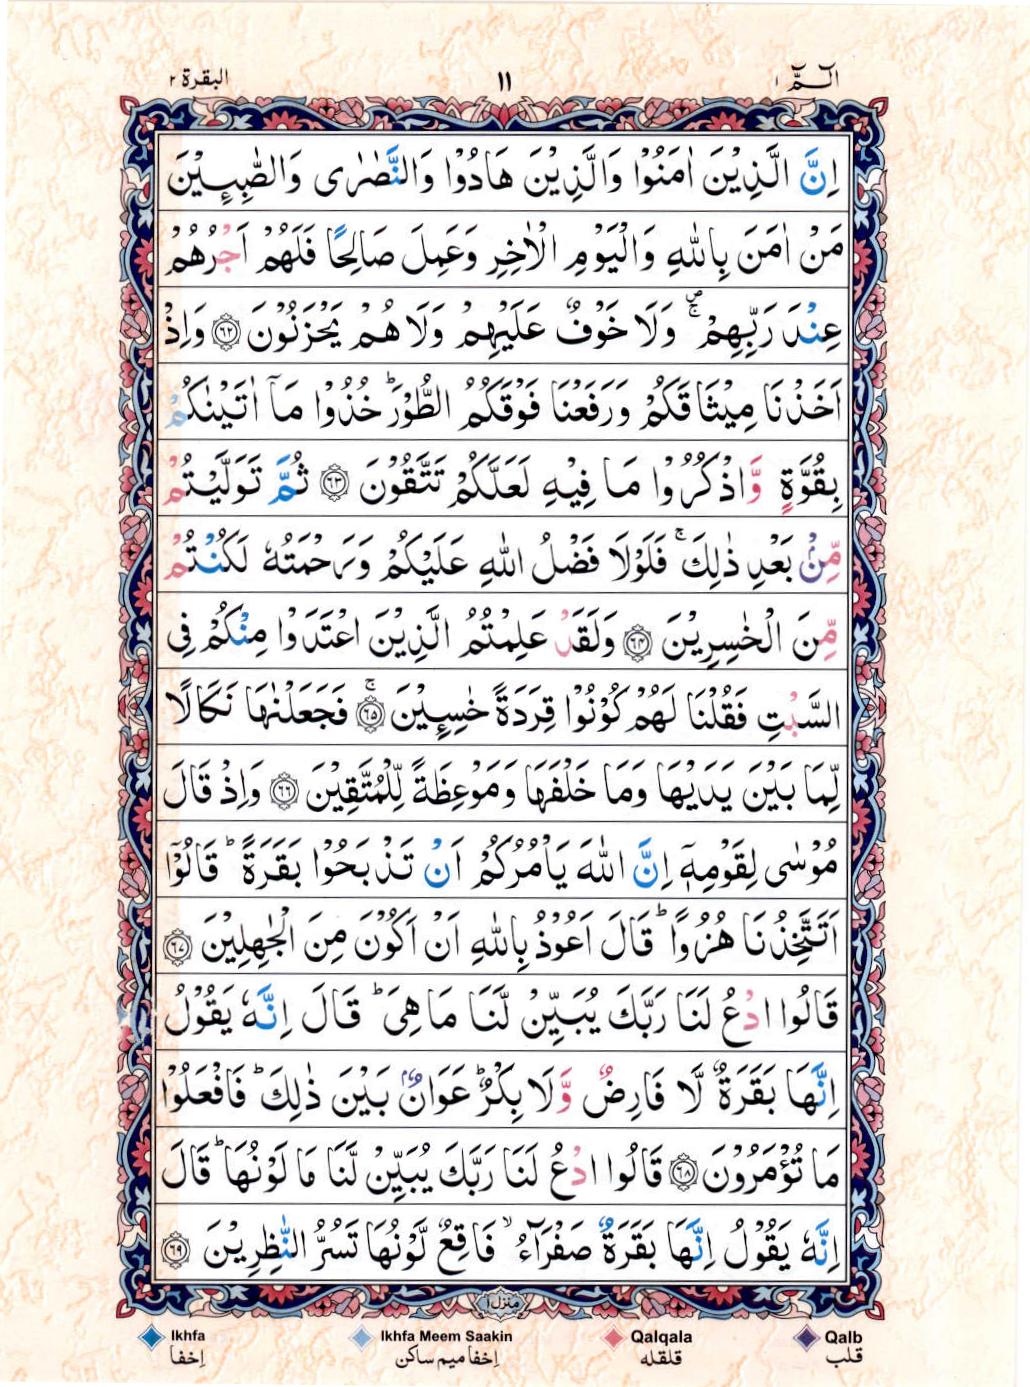 الٓمّٓ ١
١١
البقرة ٢
اِنَّ الَّذِيْنَ اٰمَنُوْا وَالَّذِيْنَ هَادُوْا وَالنَّصٰرٰى وَالصّٰبِـِٕيْنَ
مَنْ اٰمَنَ بِاللّٰهِ وَالْيَوْمِ الْاٰخِرِ وَعَمِلَ صَالِحًا فَلَهُمْ اَجْرُهُمْ
عِنْدَ رَبِّهِمْ ۚۖ وَلَا خَوْفٌ عَلَيْهِمْ وَلَا هُمْ يَحْزَنُوْنَ ۝٦٢ وَاِذْ
اَخَذْنَا مِيْثَاقَكُمْ وَرَفَعْنَا فَوْقَكُمُ الطُّوْرَ ؕ خُذُوْا مَاۤ اٰتَيْنٰكُمْ
بِقُوَّةٍ وَّاذْكُرُوْا مَا فِيْهِ لَعَلَّكُمْ تَتَّقُوْنَ ۝٦٣ ثُمَّ تَوَلَّيْتُمْ
مِّنْۢ بَعْدِ ذٰلِكَ ۚ فَلَوْلَا فَضْلُ اللّٰهِ عَلَيْكُمْ وَرَحْمَتُهٗ لَكُنْتُمْ
مِّنَ الْخٰسِرِيْنَ ۝٦٤ وَلَقَدْ عَلِمْتُمُ الَّذِيْنَ اعْتَدَوْا مِنْكُمْ فِى
السَّبْتِ فَقُلْنَا لَهُمْ كُوْنُوْا قِرَدَةً خٰسِـِٕيْنَ ۝٦٥ ۚ فَجَعَلْنٰهَا نَكَالًا
لِّمَا بَيْنَ يَدَيْهَا وَمَا خَلْفَهَا وَمَوْعِظَةً لِّلْمُتَّقِيْنَ ۝٦٦ وَاِذْ قَالَ
مُوْسٰى لِقَوْمِهٖۤ اِنَّ اللّٰهَ يَاْمُرُكُمْ اَنْ تَذْبَحُوْا بَقَرَةً ؕ قَالُوْۤا
اَتَتَّخِذُنَا هُزُوًا ؕ قَالَ اَعُوْذُ بِاللّٰهِ اَنْ اَكُوْنَ مِنَ الْجٰهِلِيْنَ ۝٦٧
قَالُوا ادْعُ لَنَا رَبَّكَ يُبَيِّنْ لَّنَا مَا هِىَ ؕ قَالَ اِنَّهٗ يَقُوْلُ
اِنَّهَا بَقَرَةٌ لَّا فَارِضٌ وَّلَا بِكْرٌ ؕ عَوَانٌۢ بَيْنَ ذٰلِكَ ؕ فَافْعَلُوْا
مَا تُؤْمَرُوْنَ ۝٦٨ قَالُوا ادْعُ لَنَا رَبَّكَ يُبَيِّنْ لَّنَا مَا لَوْنُهَا ؕ قَالَ
اِنَّهٗ يَقُوْلُ اِنَّهَا بَقَرَةٌ صَفْرَآءُ ۙ فَاقِعٌ لَّوْنُهَا تَسُرُّ النّٰظِرِيْنَ ۝٦٩
منزل ١
Ikhfa Ikhfa Meem Saakin Qalqala Qalb
إخفا إخفا ميم ساكن قلقله قلب